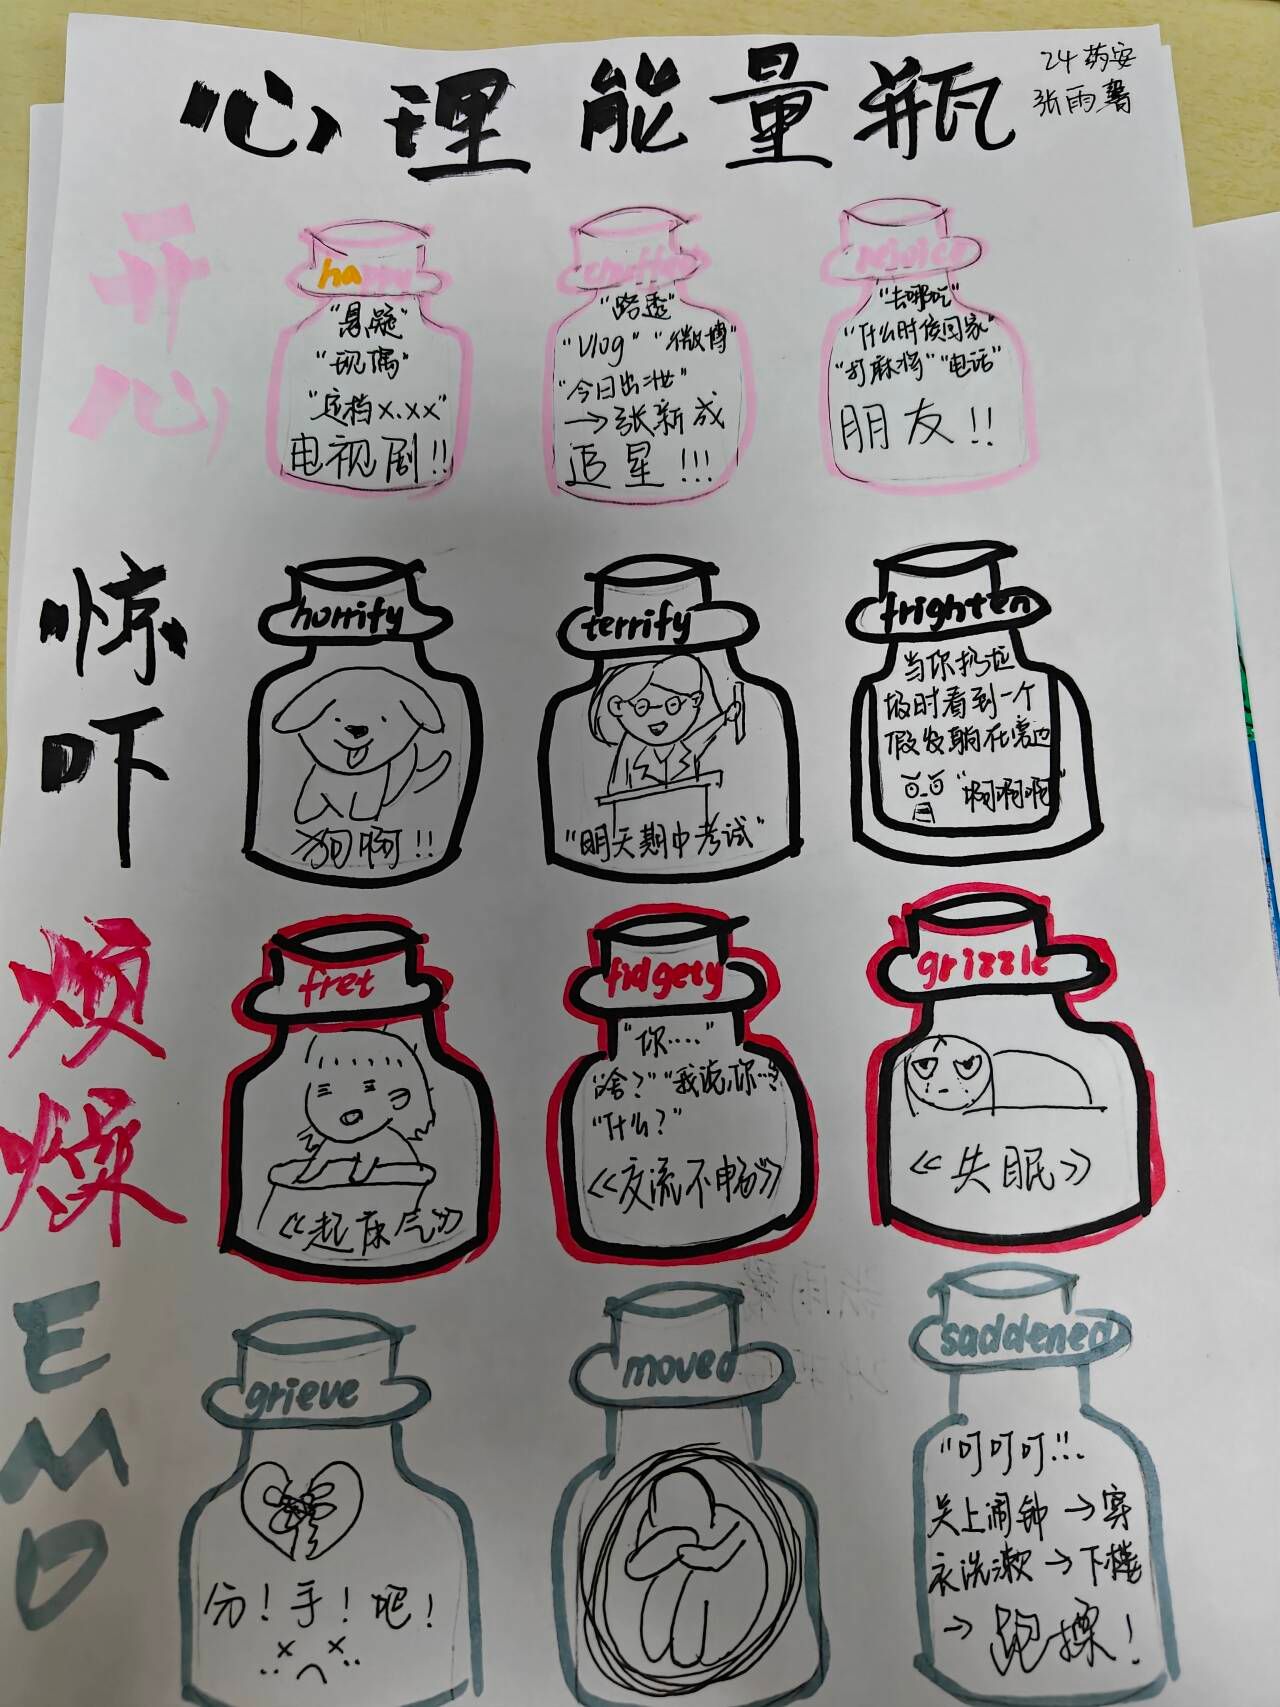 心理能量瓶
24药安
张雨馨
开心
happy
"悬疑"
"现偶"
"定档x.xx"
电视剧!!
"路透"
"Vlog" "微博"
"今日出泄"
→张新成
追星!!!
rejoice
"去哪吃"
"什么时候回家"
"打麻将" "电话"
朋友!!
惊吓
horrify
狗啊!!
terrify
"明天期中考试"
frighten
当你扔垃
圾时看到一个
假发躺在旁边
"啊啊啊"
烦燥
fret
《起床气》
fidgety
"你...."
"啥?" "我说,你...?"
"什么?"
《交流不畅》
grizzle
《失眠》
EMO
grieve
分!手!吧!
moved
saddened
"叮叮叮"!..
关上闹钟→穿
衣洗漱→下楼
→跑操!